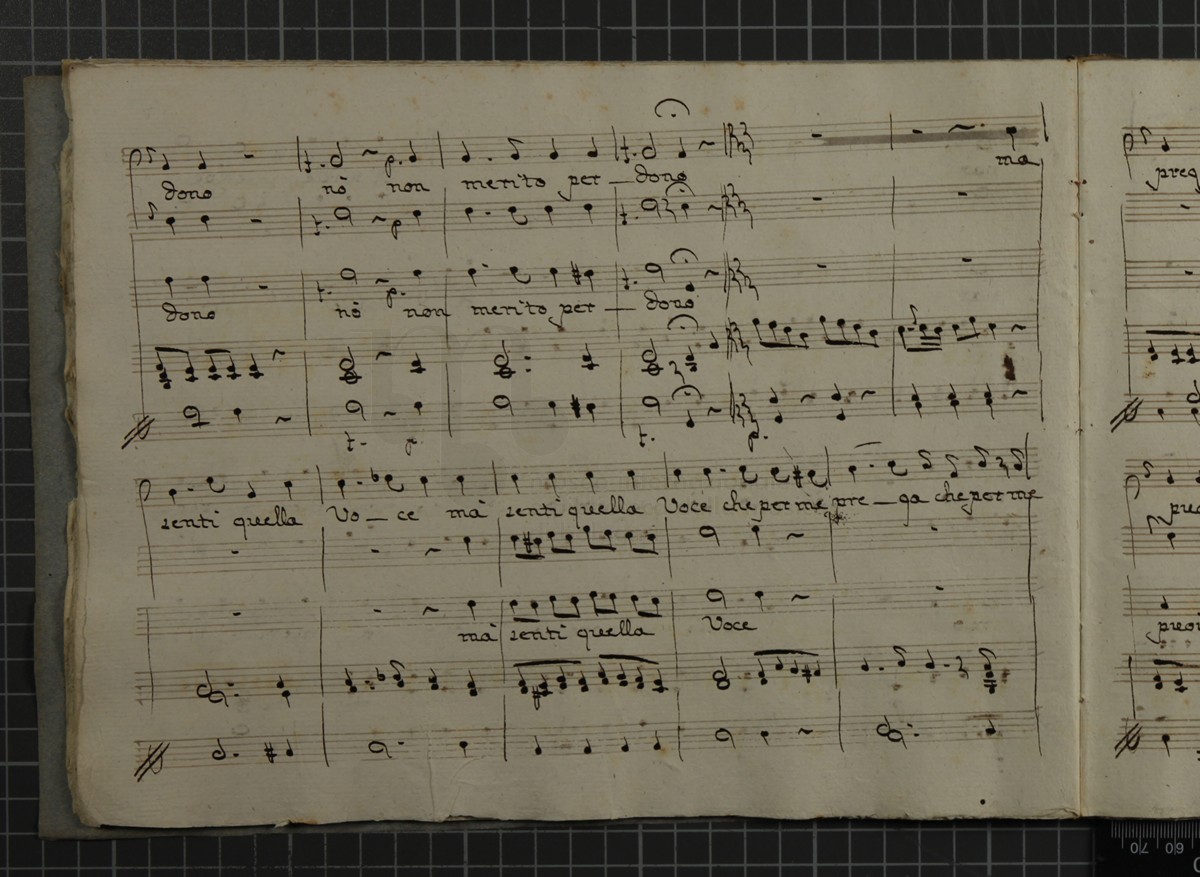 dono nò non merito per — dono ma
dono nò non merito per — dono
senti quella Vo — ce mà senti quella Voce che per me pre — ga che per me
mà senti quella Voce
60
70